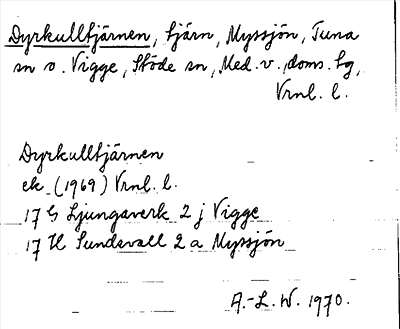 Dyrkulltjärnen, tjärn, Myssjön, Tuna
sn o. Vigge, Stöde sn, Med. v. doms. tg,
Vrnl. l.
Dyrkulltjärnen
ek. (1969) Vrnl. l.
17 G Ljungaverk 2 j Vigge
17 H Sundsvall 2 a Myssjön
A.-L. W. 1970.